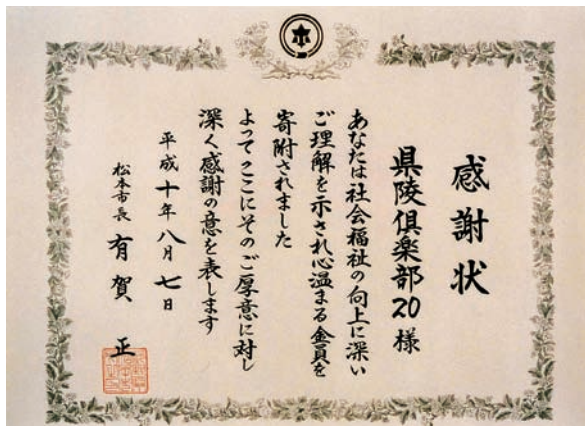 感謝状
県陵倶楽部20様
あなたは社会福祉の向上に深い
ご理解を示され心温まる金員を
寄附されました
よってここにそのご厚意に対し
深く感謝の意を表します
平成十年八月七日
松本市長 有賀正